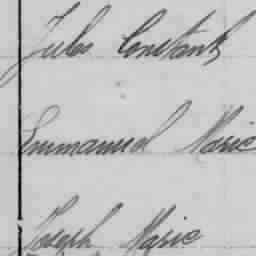 Jules Constant
Emmanuel Marie
Joseph Marie